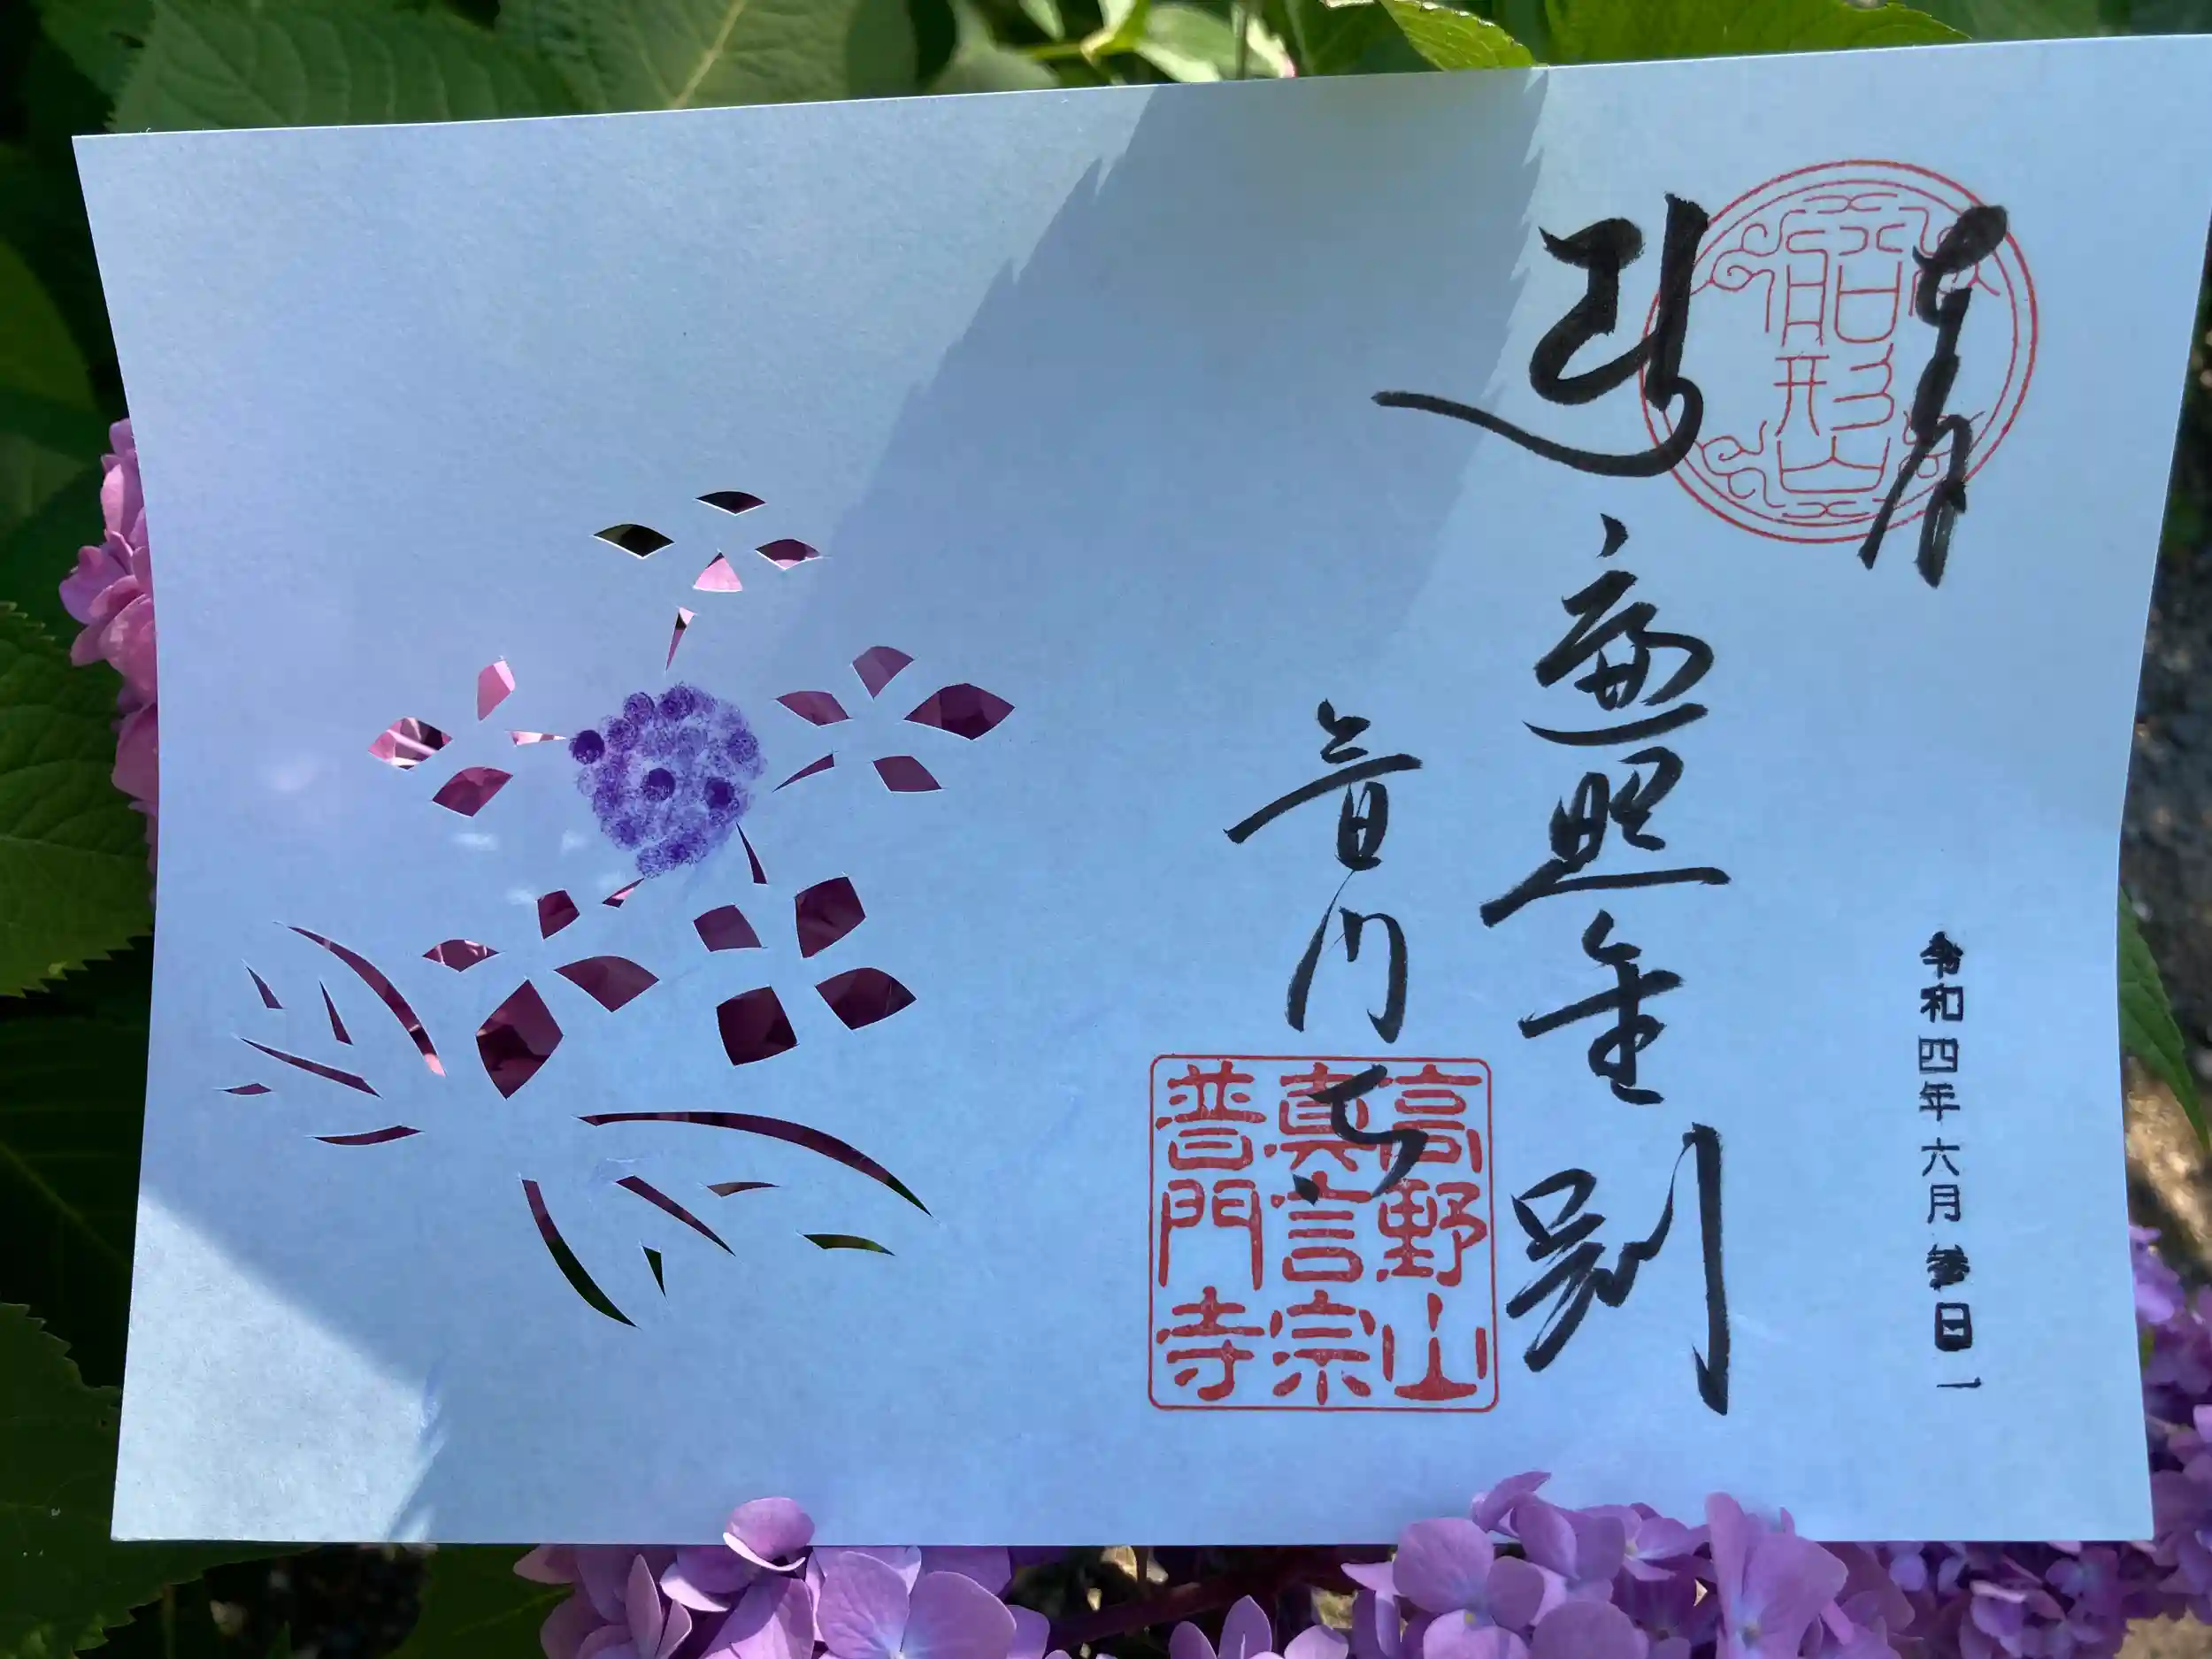 船形山
令和四年六月参日
遍照金剛
普門寺
高野山
真言宗
普門寺